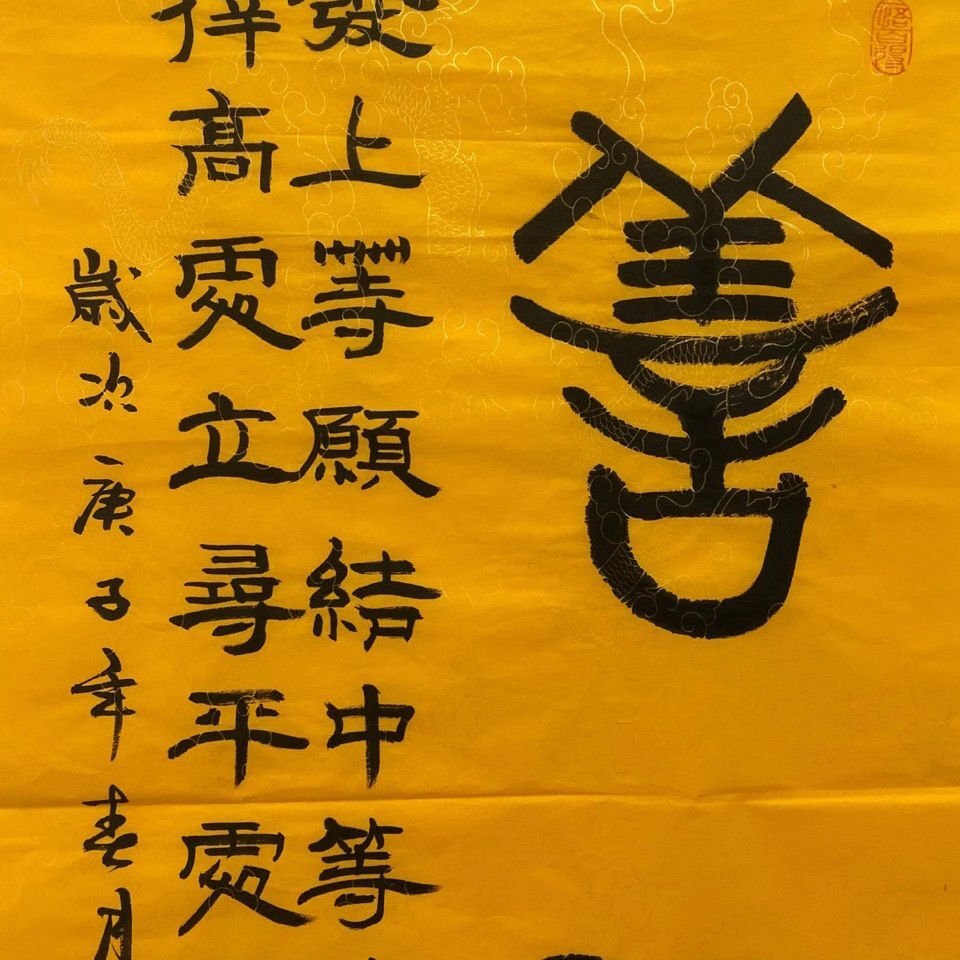 善
發上等願結中等
擇高處立尋平處
歲次庚子年春月